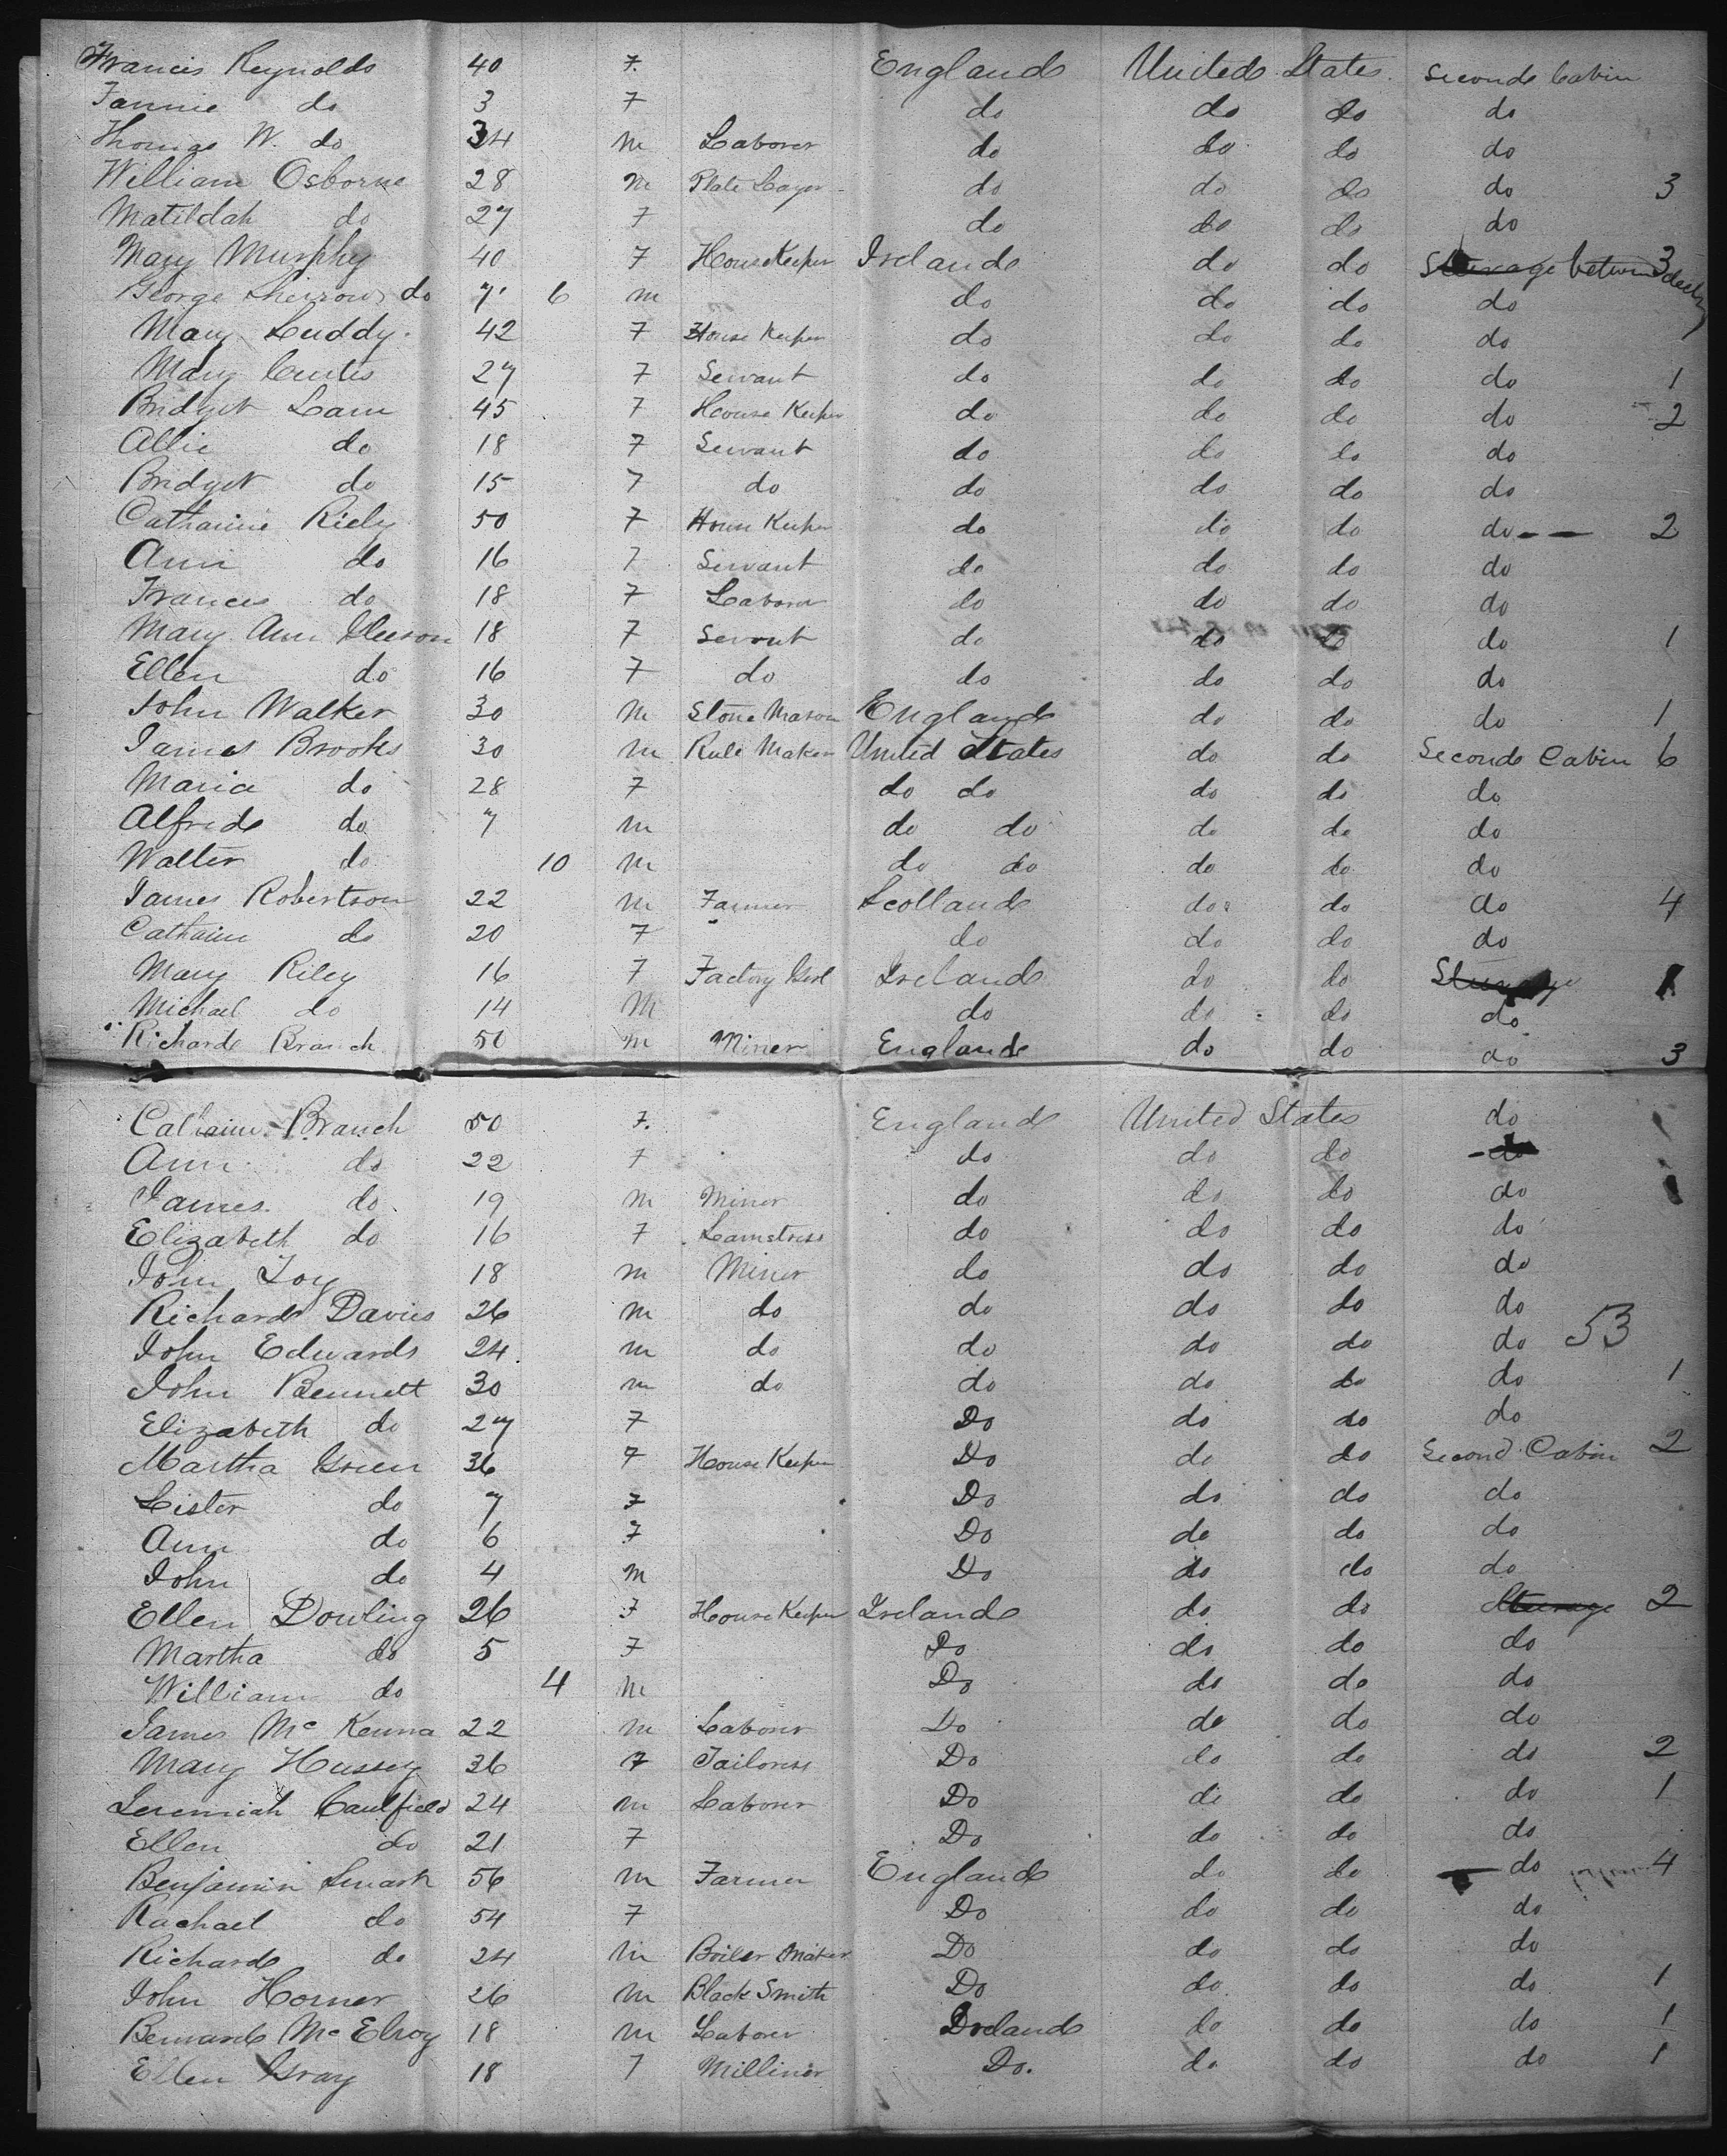 Francis Reynolds 40 F. England United States Second Cabin
Fannie do 3 F do do do do
Thomas W. do 34 m Laborer do do do do
William Osborne 28 m Plate Layer do do do do 3
Matildah do 27 F do do do do
Mary Murphy 40 F HouseKeeper Ireland do do Steerage between decks 3
George do 7 6 m do do do do
Mary Luddy 42 F House Keeper do do do do
Mary Curtis 27 F Servant do do do do 1
Bridget Lam 45 F House Keeper do do do do 2
Allie do 18 F Servant do do do do
Bridget do 15 F do do do do do
Catharine Riely 50 F House Keeper do do do do 2
Ann do 16 F Servant do do do do
Frances do 18 F Laborer do do do do
Mary Ann Gleeson 18 F Servant do do do do 1
Ellen do 16 F do do do do do
John Walker 30 m Stone Mason England do do do 1
James Brooks 30 m Rule Maker United States do do Second Cabin 6
Maria do 28 F do do do do do
Alfred do 7 m do do do do do
Walter do 10 m do do do do do
James Robertson 22 m Farmer Scotland do do do 4
Catharine do 20 F do do do do
Mary Riley 16 F Factory Girl Ireland do do Steerage 1
Michael do 14 M do do do do
Richard Branch 50 m Miner England do do do 3
Catharine Branch 50 F. England United States do
Ann do 22 F do do do do
James do 19 m Miner do do do do
Elizabeth do 16 F Seamstress do do do do
John Toy 18 m Miner do do do do
Richard Davies 26 m do do do do do
John Edwards 24 m do do do do do 53
John Bennett 30 m do do do do do 1
Elizabeth do 27 F Do do do do
Martha Green 36 F House Keeper Do do do Second Cabin 2
Lister do 7 F Do do do do
Ann do 6 F Do do do do
John do 4 m Do do do do
Ellen Dowling 26 F House Keeper Ireland do do Steerage 2
Martha do 5 F Do do do do
William do 4 m Do do do do
James McKenna 22 m Laborer Do do do do
Mary Hussey 36 F Tailoress Do do do do 2
Jeremiah Caulfield 24 m Laborer Do do do do 1
Ellen do 21 F Do do do do
Benjamin Smark 56 m Farmer England do do do 4
Rachael do 54 F Do do do do
Richard do 24 m Boiler Maker Do do do do
John Horner 26 m Black Smith Do do do do 1
Bernard McElroy 18 m Laborer Ireland do do do 1
Ellen Gray 18 F Milliner Do. do do do 1